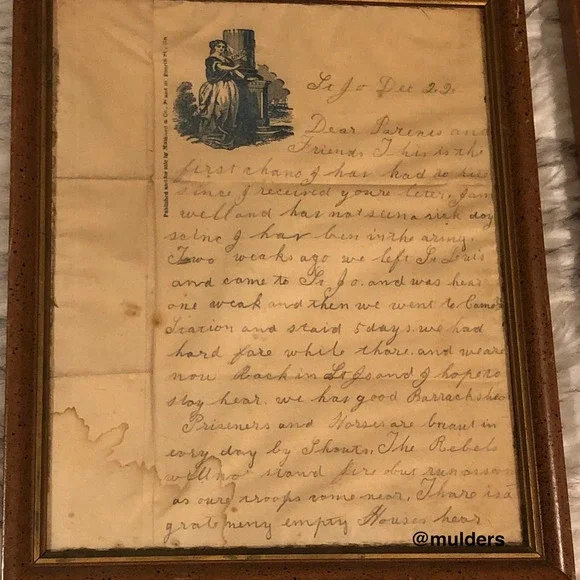 St Jo Dec 22
Dear Parents and
Friends This is the
first chanc I hav had to
since I received youre leter. I am
well and has not seen a sick day
scinc I hav ben in the army.
Two weaks ago we left St Louis
and came to St Jo. and was hear
one weak and then we went to Came
Station and staid 5 days. we had
hard fare while thare. and we are
now Back in St Jo and I hope to
stay hear. we has good Barracks hear
Priseners and Horses are braut in
evry day by Skouts, The Rebels
will not stand fire but run as soon
as oure troops come near, Thare is a
grate meny empty Houses hear
Published and for sale by
@mulders